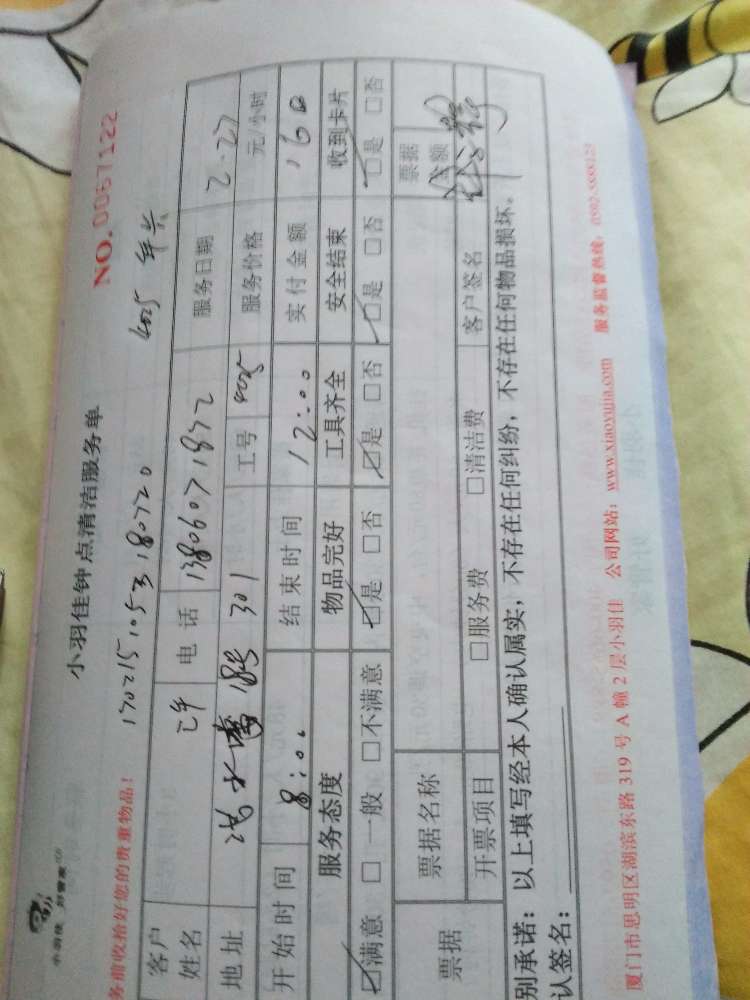 小羽佳 好管家
小羽佳钟点清洁服务单
NO.0067122
务前收拾好您的贵重物品!
1702151053180720
客户姓名 电话 13806071872 服务日期 2.27
地址 18号 301 工号 服务价格 元/小时
开始时间 8:00 结束时间 12:00 实付金额 160
服务态度 物品完好 工具齐全 安全结束 收到卡片
☑满意 □一般 □不满意 ☑是 □否 ☑是 □否 ☑是 □否 ☑是 □否
票据 票据名称 票据金额
开票项目 □服务费 □清洁费 客户签名
别承诺:以上填写经本人确认属实,不存在任何纠纷,不存在任何物品损坏。
认签名:
厦门市思明区湖滨东路 319 号 A 幢 2 层小羽佳 公司网站:www.xiaoyujia.com 服务监督热线:0592-5888123